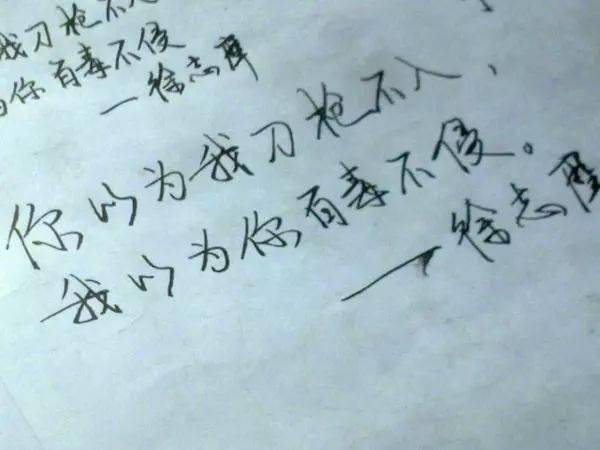 我刀枪不入
为你百毒不侵
—徐志摩
你以为我刀枪不入、
我以为你百毒不侵。
—徐志摩